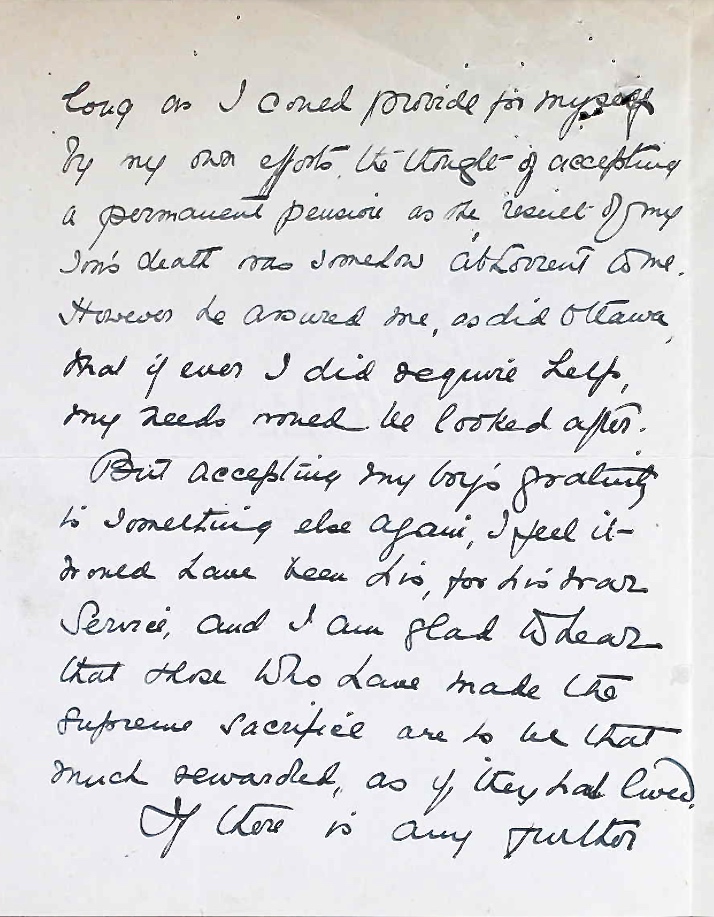 long as I could provide for myself
by my own efforts, the thought of accepting
a permanent pension as the result of my
son's death was somehow abhorrent to me.
However he assured me, as did Ottawa,
that if ever I did require help,
my needs would be looked after.
But accepting my boy's gratuity
is something else again, I feel it
would have been his, for his war
Service, and I am glad to hear
that those who have made the
supreme sacrifice are to be that
much rewarded, as if they had lived.
If there is any further